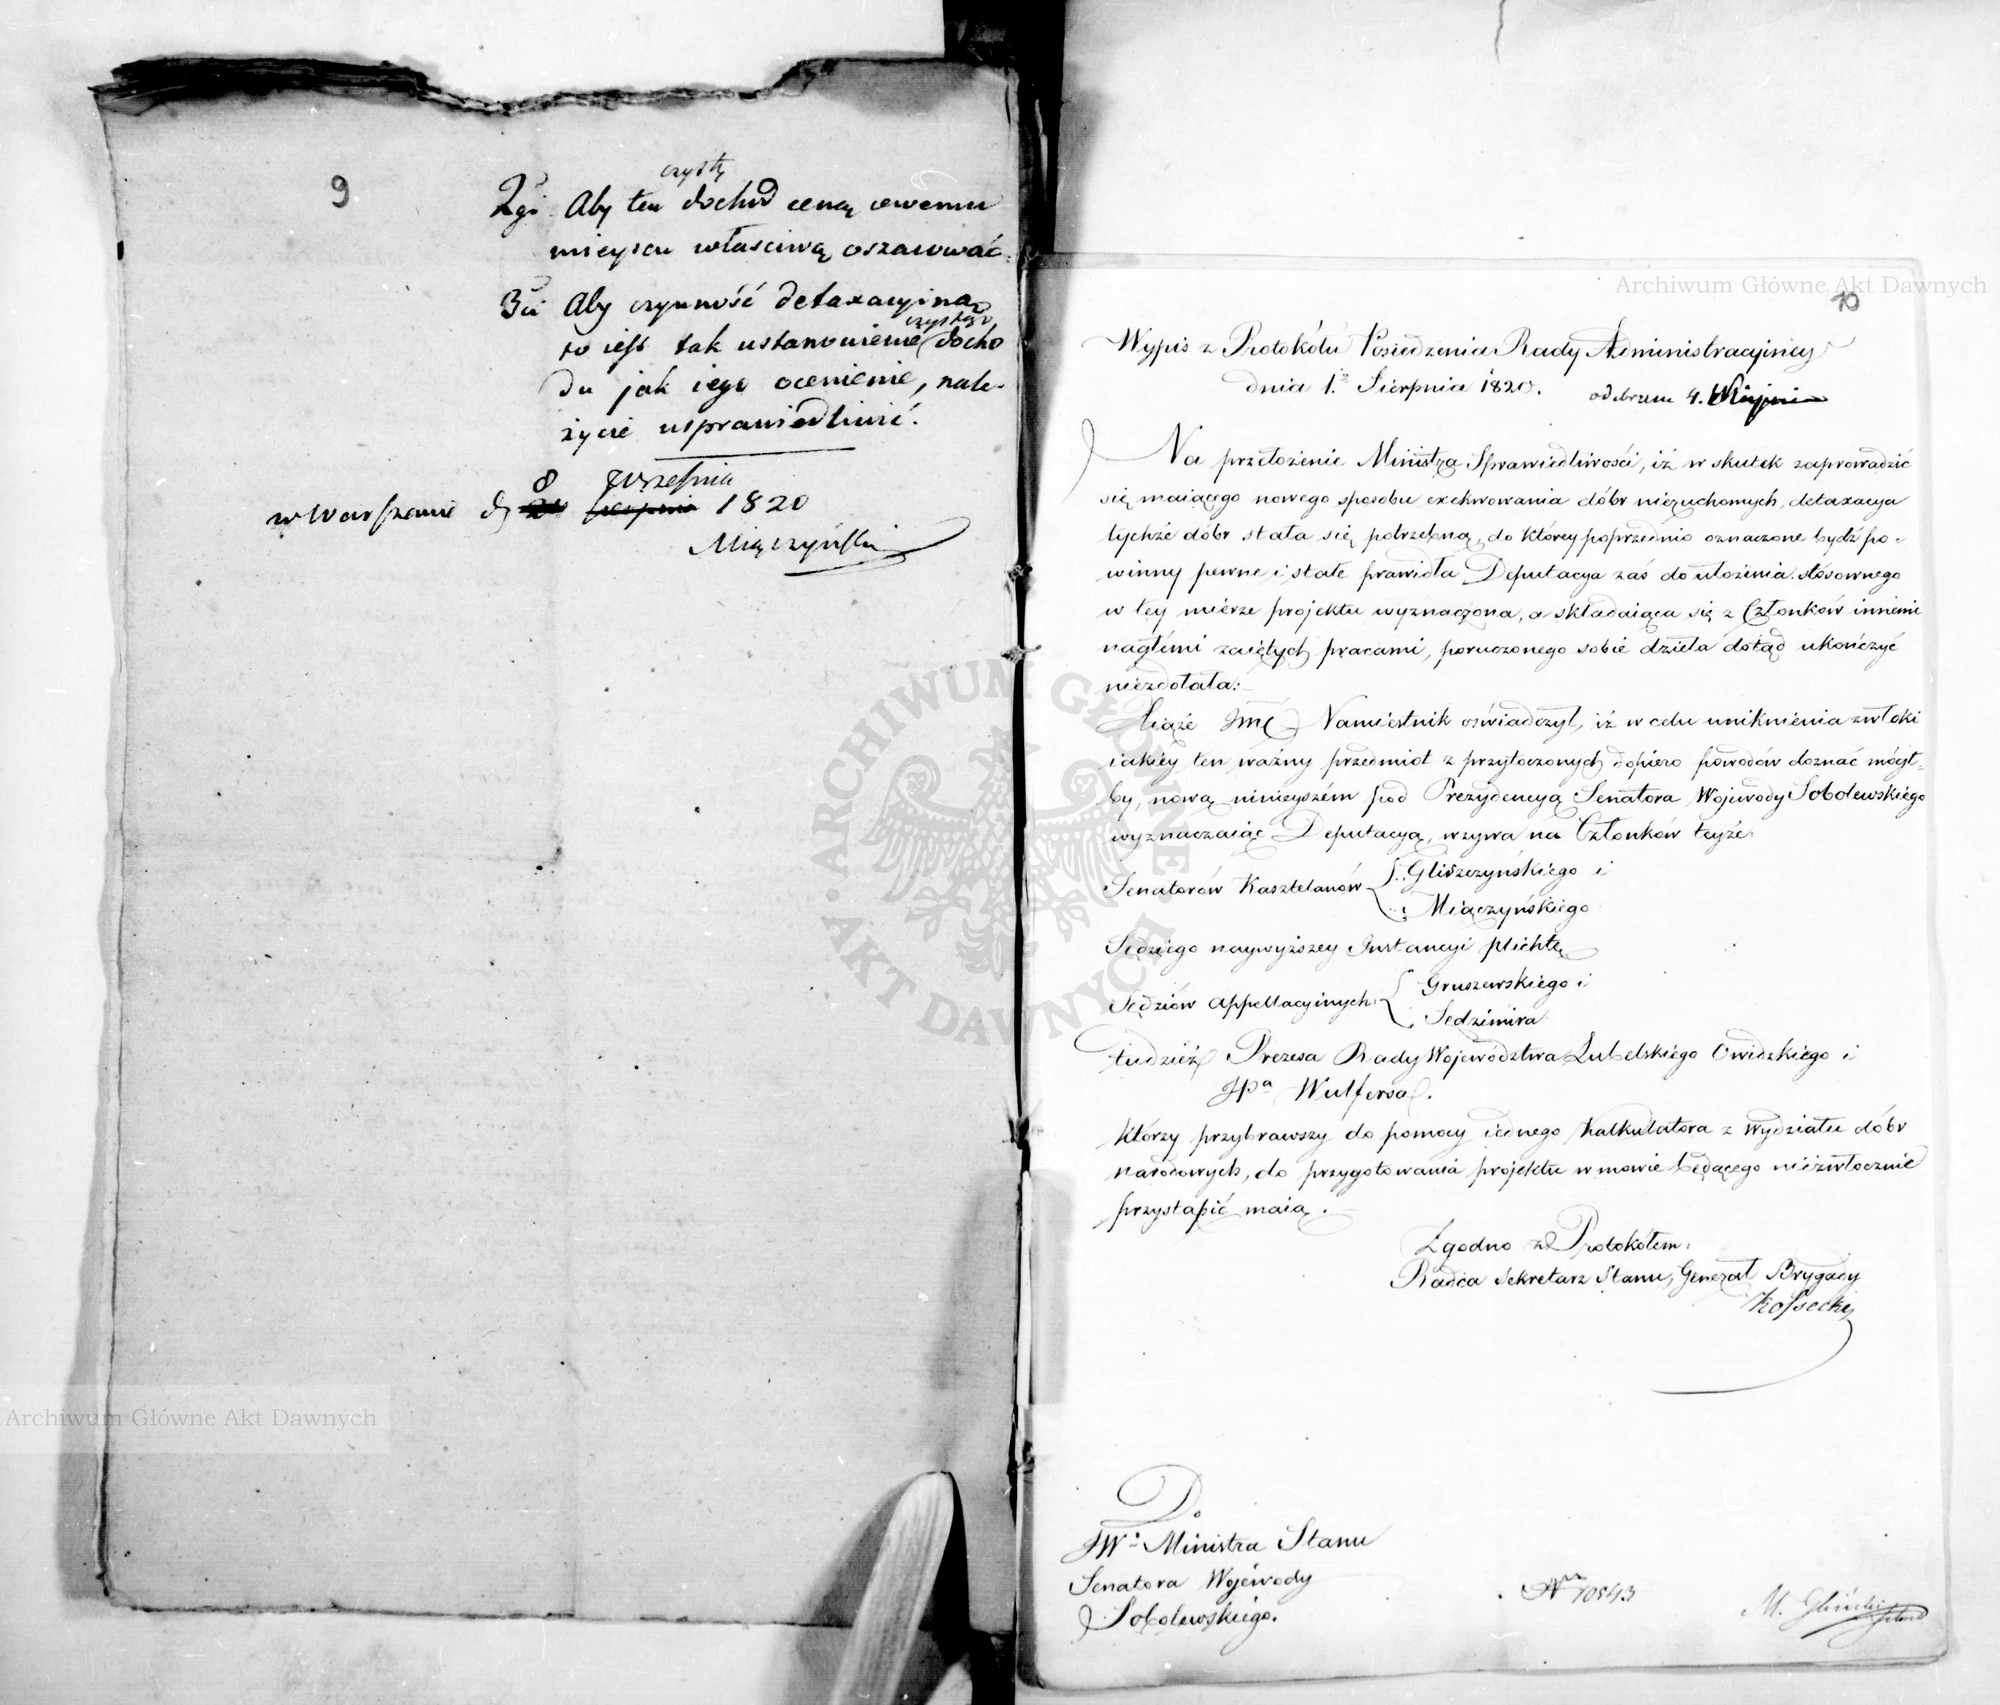 9
czysty
2gi Aby ten dochod ceną owemu
mieyscu właściwą oszacować.
3ci Aby czynność detaxacyina
czystego
to iest tak ustanowienie docho
du jak iego ocenienie, nale-
życie usprawiedliwić.
8 Września
w Warszawie d. 1820
Miączyński
Archiwum Główne Akt Dawnych
10
Wypis z Protokółu Posiedzenia Rady Administracyiney
dnia 1. Sierpnia 1820. odebrane 4.
Na przełożenie Ministra Sprawiedliwości, iż w skutek zaprowadzić
się maiącego nowego sposobu exekwowania dóbr nieruchomych, detaxacya
tychże dóbr stała się potrzebną, do którey poprzednio oznaczone bydź po-
winny pewne i stałe prawidła Deputacya zaś do ułożenia stosownego
w tey mierze projektu wyznaczona, a składaiąca się z Członków innemi
nagłemi zaiętych pracami, poruczonego sobie dzieła dotąd ukończyć
niezdołała:
Xiąże Jmć Namiestnik oświadczył, iż w celu uniknienia zwłoki
iakiéy ten ważny przedmiot z przytoczonych dopiero powodów doznać mógł-
by, nową ninieyszém pod Prezydencyą Senatora Wojewody Sobolewskiego
wyznaczaiąc Deputacyą, wzywa na Członków teyże:
Senatorów Kasztelanów Gliszczyńskiego i
Miączyńskiego
Sędziego naywyższey Instancyi Plichtę
Sędziów Appellacyinych: Gruszewskiego i
Sędzimira
tudzież Prezesa Rady Województwa Lubelskiego Owidzkiego i
JPa Wulfersa.
Którzy przybrawszy do pomocy iednego Kalkulatora z Wydziału dóbr
narodowych, do przygotowania projektu w mowie będącego niezwłocznie
przystąpić maią.
Zgodno z Protokółem:
Radca Sekretarz Stanu, Generał Brygady
Kossecki
Do
JW. Ministra Stanu
Senatora Wojewody
Sobolewskiego.
Nr 10543
M.
Archiwum Główne Akt Dawnych
ARCHIWUM GŁÓWNE AKT DAWNYCH